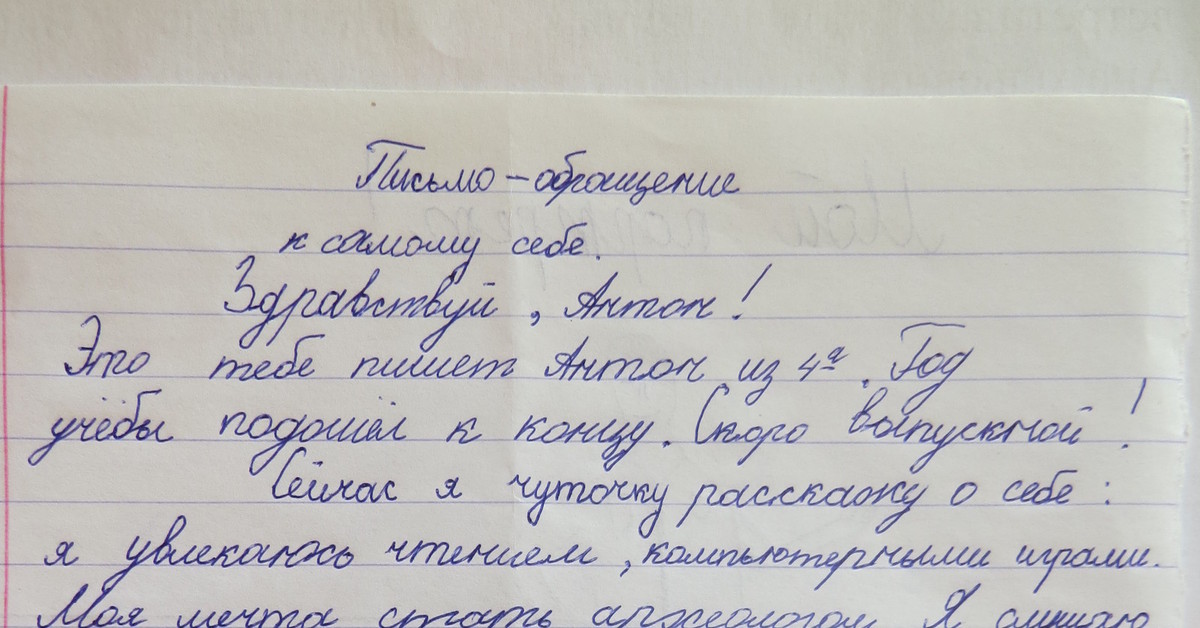 Письмо-обращение
к самому себе.
Здравствуй, Антон!
Это тебе пишет Антон из 4а. Год
учёбы подошёл к концу. Скоро выпускной!
Сейчас я чуточку расскажу о себе:
я увлекаюсь чтением, компьютерными играми.
Моя мечта стать археологом. Я